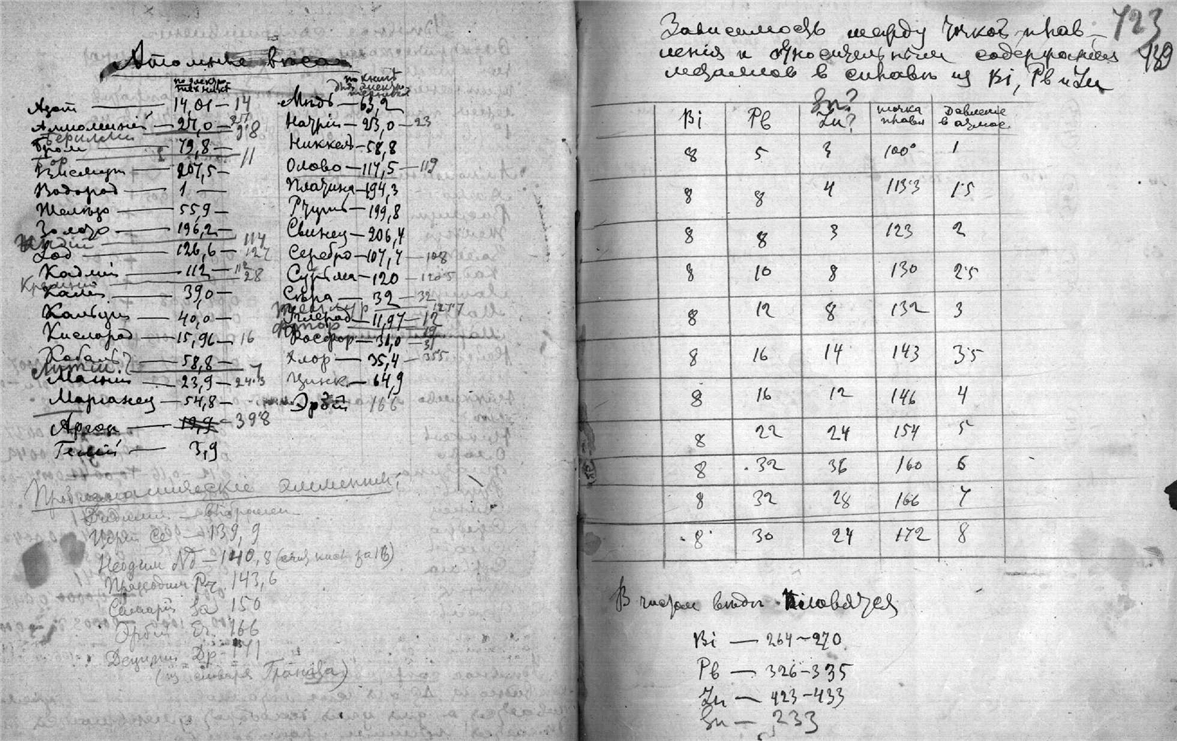 Атомные веса
Азот — 14,01 — 14
Алюминий — 27,0
Бериллий
Бром — 79,8
Бор — 11
Висмут — 207,5
Водород — 1
Железо — 55,9
Золото — 196,2
Индій — 114
Iод — 126,6 — 127
Кадмій — 112 — 112
Кремній — 28
Калій — 39,0
Кальцій — 40,0
Кислород — 15,96 — 16
Кобальт — 58,8
Литій — 7
Магній — 23,9 — 24.3
Марганец — 54,8
Аргон — 19,9 — 39.8
Гелій — 3,9
Мѣдь — 63,2
Натрій — 23,0 — 23
Никкель — 58,8
Олово — 117,5 — 119
Платина — 194,3
Ртуть — 199,8
Свинец — 206,4
Серебро — 107,7 — 108
Сурьма — 120 — 120.5
Сѣра — 32 — 32
Теллур
Углерод — 11,97 — 12
Фтор — 19
Фосфор — 31,0 — 31
Хлор — 35,4 — 35.5
Цинк — 64,9
Эрбій 166
элементы
Церій Ce — 139,9
Неодим Nd = 140,8
Празеодим Pr. 143,6
Самарій Sa 150
Эрбій Er. 166
Деципій Dp = 171
723
Зависимость между точкой плав-
ления и относительным содержанием
металлов в сплавы из Bi, Pb и Zn
Sn?
Bi Pb Zn? точка плавл Давление в атмос
8 5 3 100° 1
8 8 4 113.3 1.5
8 8 3 123 2
8 10 8 130 2.5
8 12 8 132 3
8 16 14 143 3.5
8 16 12 146 4
8 22 24 154 5
8 32 36 160 6
8 32 28 166 7
8 30 24 172 8
В чистом виде плавятся
Bi — 264–270
Pb — 326–335
Zn — 423–433
Sn — 233